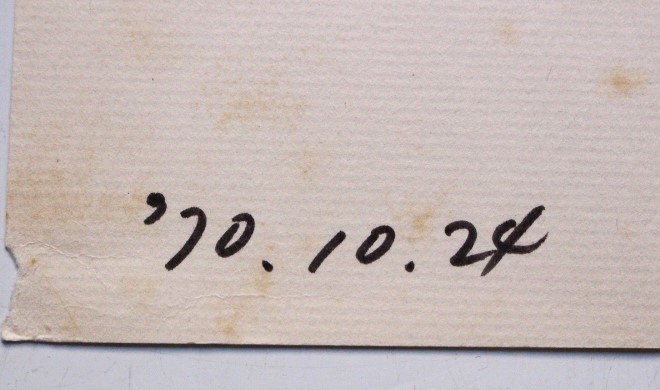 '70. 10. 24